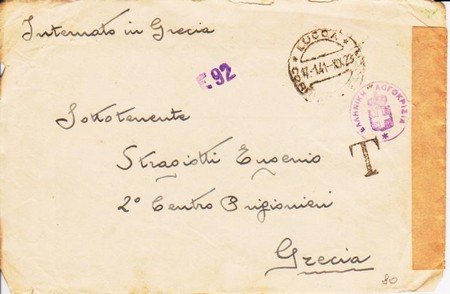 Internato in Grecia
LUCCA
17·1·41·XIX
E. 92
ΕΛΛΗΝΙΚΗ ΛΟΓΟΚΡΙΣΙΑ
Sottotenente
T
Stragiotti Eugenio
2° Centro Prigionieri
Grecia
80